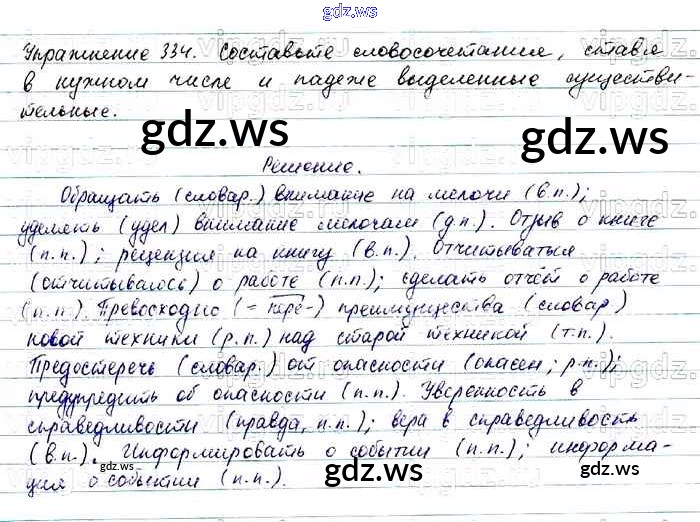 gdz.ws
Упражнение 334. Составьте словосочетания, ставя
в нужном числе и падеже выделенные существи-
тельные.
gdz.ws
gdz.ws
Решение.
Обращать (словар.) внимание на мелочи (в.п.);
уделять (удел) внимание мелочам (д.п.). Отзыв о книге
(п.п.); рецензия на книгу (в.п.). Отчитываться
(отчитывалось) о работе (п.п.); сделать отчёт о работе
(п.п.). Превосходно (= пере-) преимущества (словар)
новой техники (р.п.) над старой техникой (т.п.).
Предостеречь (словар.) от опасности (опасен; р.п.);
предупредить об опасности (п.п.). Уверенность в
справедливости (правда, п.п.); вера в справедливость
(в.п.). Информировать о событии (п.п.); информа-
ция о событии (п.п.).
gdz.ws
gdz.ws